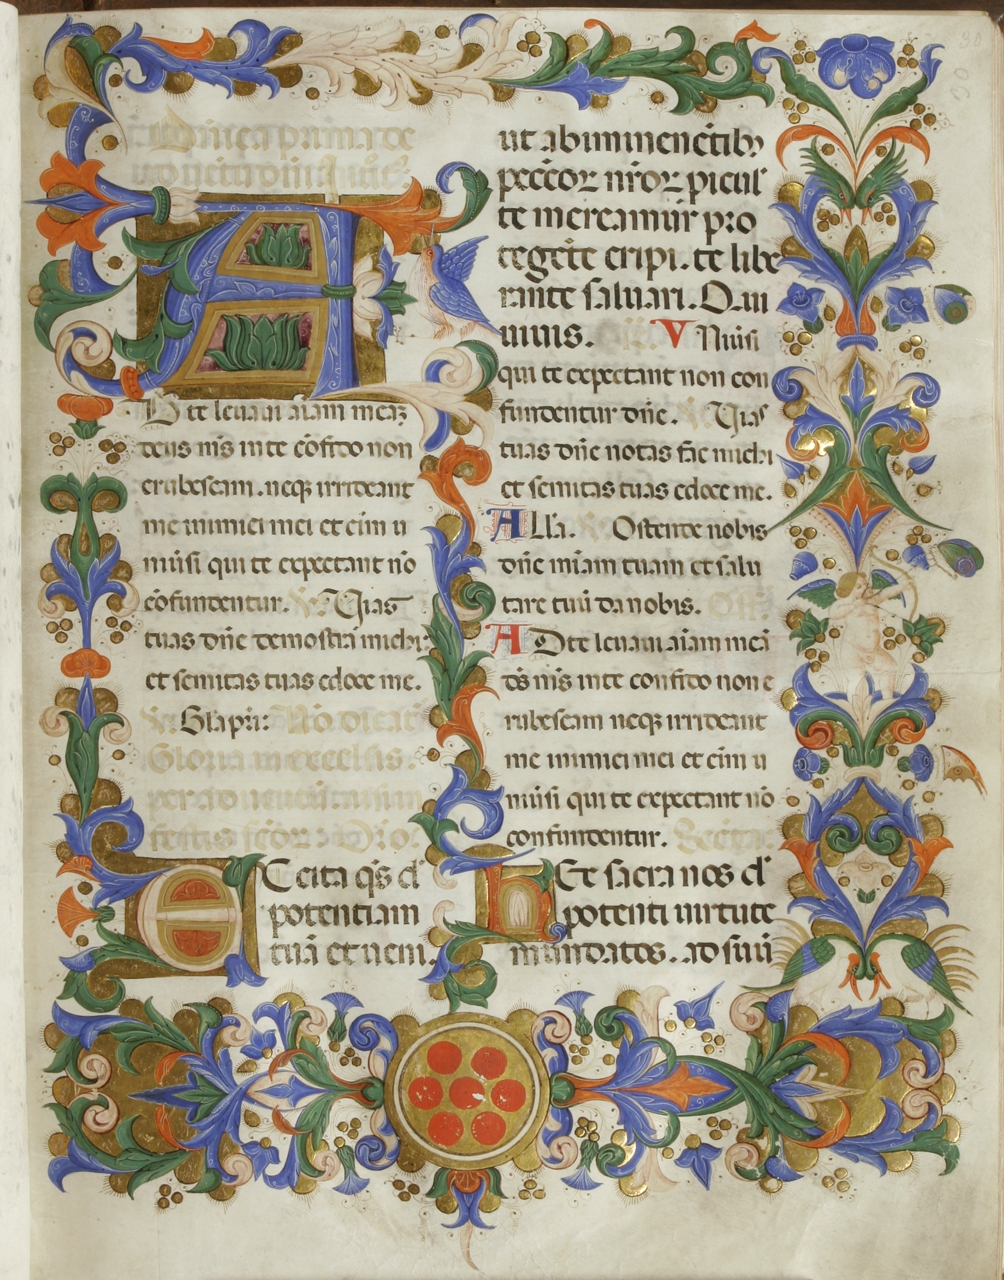 Dnica prima de
aduentu dni
A
D te leuaui aiam meaʒ
deus ms in te cōfido non
erubescam. neqʒ irrideant
me inimici mei et eim u
niūsi qui te expectant nō
cōfundentur. V. Uias
tuas dnē demostra michi
et semitas tuas edoce me.
V. Gla pri: Nō dicat
Gloria in excelsis.
per aduentū
festis scōr. Oro.
E
Xcita qs dn
potentiam
tuā et ueni.
ut ab iminenētibʒ
peccōꝝ nrōꝝ picul
te mereamur pro
tegēte eripi. te libe
rante saluari. Qui
uiuis. V Niusi
qui te expectant non con
fundentur dnē. V. Uias
tuas dnē notas fac michi
et semitas tuas edoce me.
Alla. V. Ostende nobis
dnē miam tuam et salu
tare tuū da nobis. Off.
AD te leuaui aiam meā
ds ms in te confido non e
rubescam neqʒ irrideant
me inimici mei et eim u
niusi qui te expectant nō
confundentur. Secreta
H
Ec sacra nos dn
potenti uirtute
mundatos. ad suū